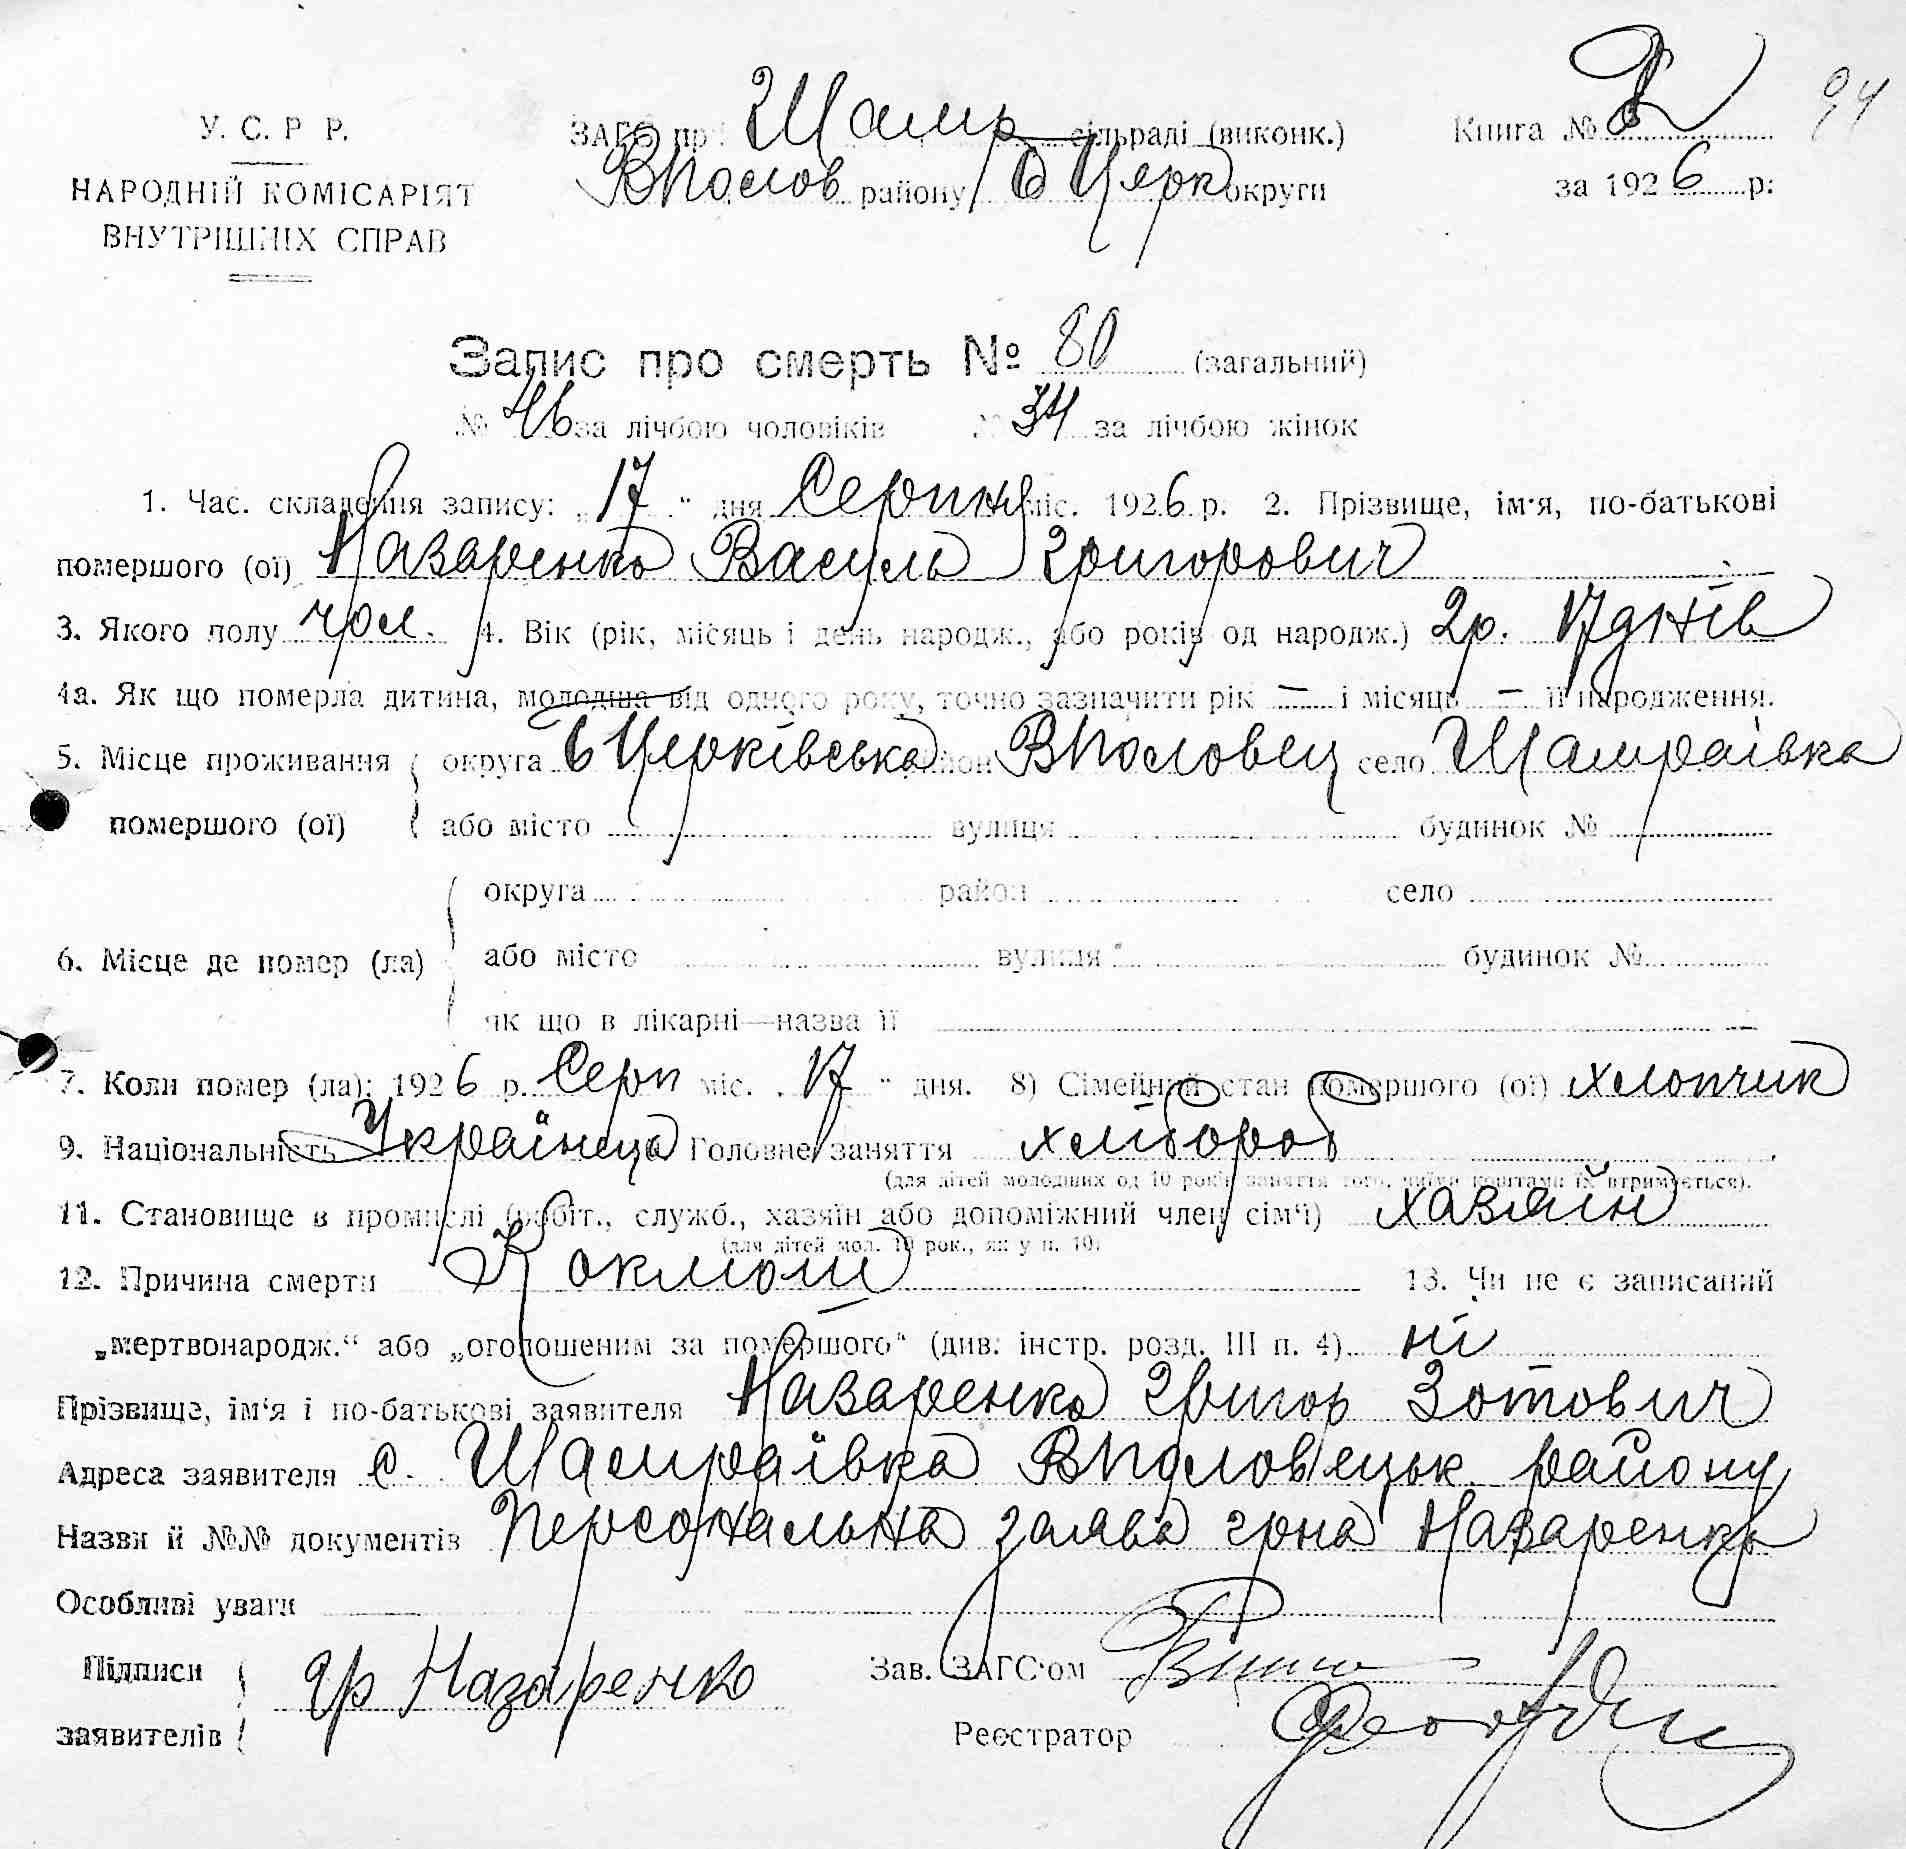 94
У. С. Р Р.
ЗАГС пр Шамр сільраді (виконк.)
Книга №
НАРОДНІЙ КОМІСАРІЯТ
ВПолов району Б Церк округи
за 1926 р:
ВНУТРІШНІХ СПРАВ
Запис про смерть № 80 (загальний)
№ 46 за лічбою чоловіків № 34 за лічбою жінок
1. Час. складення запису: „17" дня Серпня міс. 1926 р. 2. Прізвище, ім'я, по-батькові
помершого (ої) Назаренко Василь Григорович
3. Якого полу чол. 4. Вік (рік, місяць і день народж., або років од народж.) 2р. 17 днів
4а. Як що померла дитина, молодша від одного року, точно зазначити рік — і місяць — її народження.
5. Місце проживання округа Б Церківська район ВПоловец село Шамраівка
помершого (ої) або місто вулиця будинок №
округа район село
6. Місце де помер (ла) або місто вулиця будинок №
як що в лікарні—назва її —
7. Коли помер (ла): 1926 р. Серп міс. „17" дня. 8) Сімейний стан помершого (ої) хлопчик
9. Національність Українець Головне заняття хлібороб
(для дітей молодших од 10 років заняття того, чиїми коштами їх втримується).
11. Становище в промислі (робіт., служб., хазяїн або допоміжний член сім'ї) хазяїн
(для дітей мол. 10 рок., як у п. 10)
12. Причина смерти Коклюш 13. Чи не є записаний
„мертвонародж." або „оголошеним за помершого" (див: інстр. розд. III п. 4) ні
Прізвище, ім'я і по-батькові заявителя Назаренко Григор Зотович
Адреса заявителя с. Шамраівка ВПоловецьк району
Назви й №№ документів Персональна заява грна Назаренка
Особливі уваги
Підписи
заявителів
Гр Назаренко
Зав. ЗАГС'ом
Реєстратор